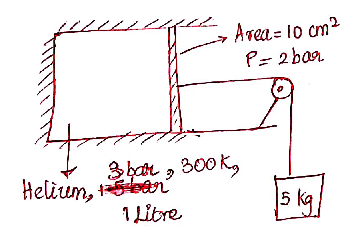 Area = 10 cm²
P = 2 bar
3 bar, 300K,
Helium, 1.5 bar
1 Litre
5 kg